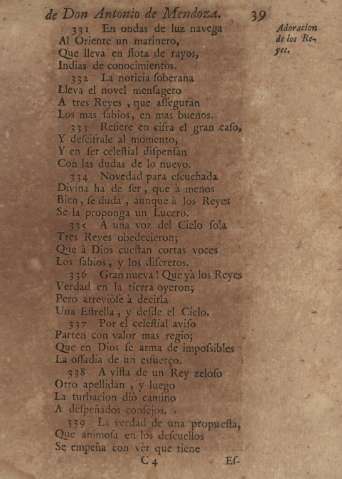 de Don Antonio de Mendoza. 39
331 En ondas de luz navega
Al Oriente un marinero,
Que lleva en flota de rayos,
Indias de conocimientos.
Adoracion
de los Re-
yes.
332 La noticia soberana
Lleva el novel mensagero
A tres Reyes, que asseguran
Los mas sabios, en mas buenos.
333 Refiere en cifra el gran caso,
Y descifrale al momento,
Y en ser celestial dispensan
Con las dudas de lo nuevo.
334 Novedad para escuchada
Divina ha de ser, que à menos
Bien, se duda, aunque à los Reyes
Se la proponga un Lucero.
335 A una voz del Cielo sola
Tres Reyes obedecieron;
Que à Dios cuestan cortas voces
Los sabios, y los discretos.
336 Gran nueva! Que yà los Reyes
Verdad en la tierra oyeron;
Pero atreviòse à decirla
Una Estrella, y desde el Cielo.
337 Por el celestial aviso
Parten con valor mas regio;
Que en Dios se arma de impossibles
La ossadia de un esfuerço.
338 A vista de un Rey zeloso
Otro apellidan, y luego
La turbacion diò camino
A despeñados consejos.
339 La verdad de una propuesta,
Que animosa en los descuellos
Se empeña con ver que tiene
C 4 Es-